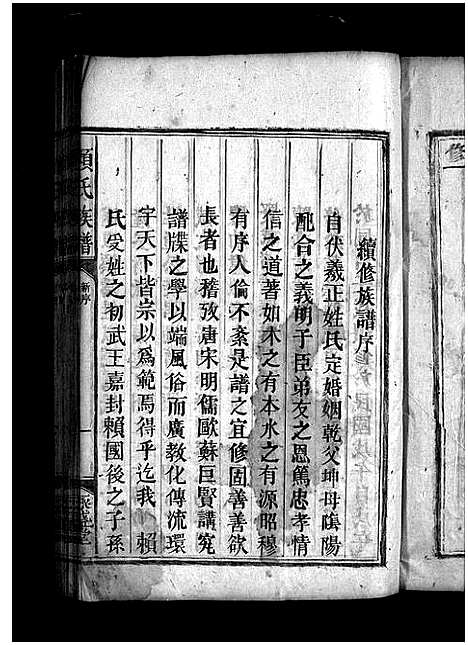 續修族譜序
自伏羲正姓氏定婚姻乾父坤母陰陽
配合之義明于臣弟友之恩篤忠孝情
信之道著如木之有本水之有源昭穆
有序人倫不紊是譜之宜修固善善欲
長者也稽攷唐宋明儒歐蘇巨賢講究
譜牒之學以端風俗而廣教化傳流環
宇天下皆宗以爲範焉得乎迄我 賴
氏受姓之初武王嘉封賴國後之子孫
賴氏族譜
新序
一
修